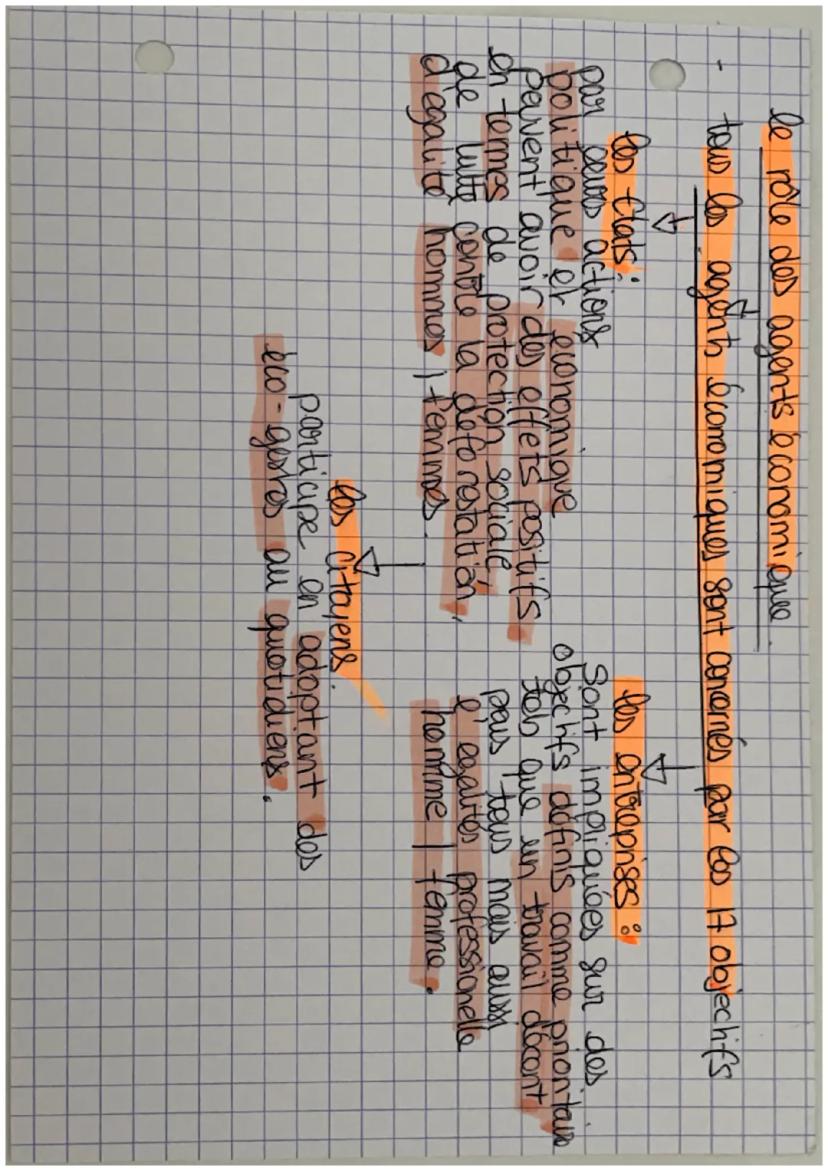 le rôle des agents économique.
- tous les agents économiques sont concernés par les 17 objectifs
les états :
par leurs actions
politique et économique
peuvent avoir des effets positifs
en termes de protection sociale
de lutte contre la deforestation,
d'egalité hommes / femmes.
les entreprises :
sont impliquées sur des
objectifs définis comme prioritaire
tels que un travail décent
pour tous mais aussi
l'egalités professionelle
homme / femme.
les citoyens.
participe en adoptant des
éco-gestes au quotidiens.